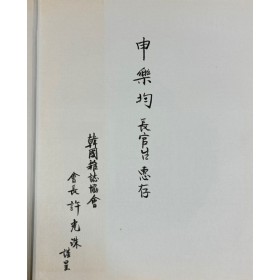 申樂均 長官님 惠存
韓國雜誌協會
會長 許光洙 謹呈